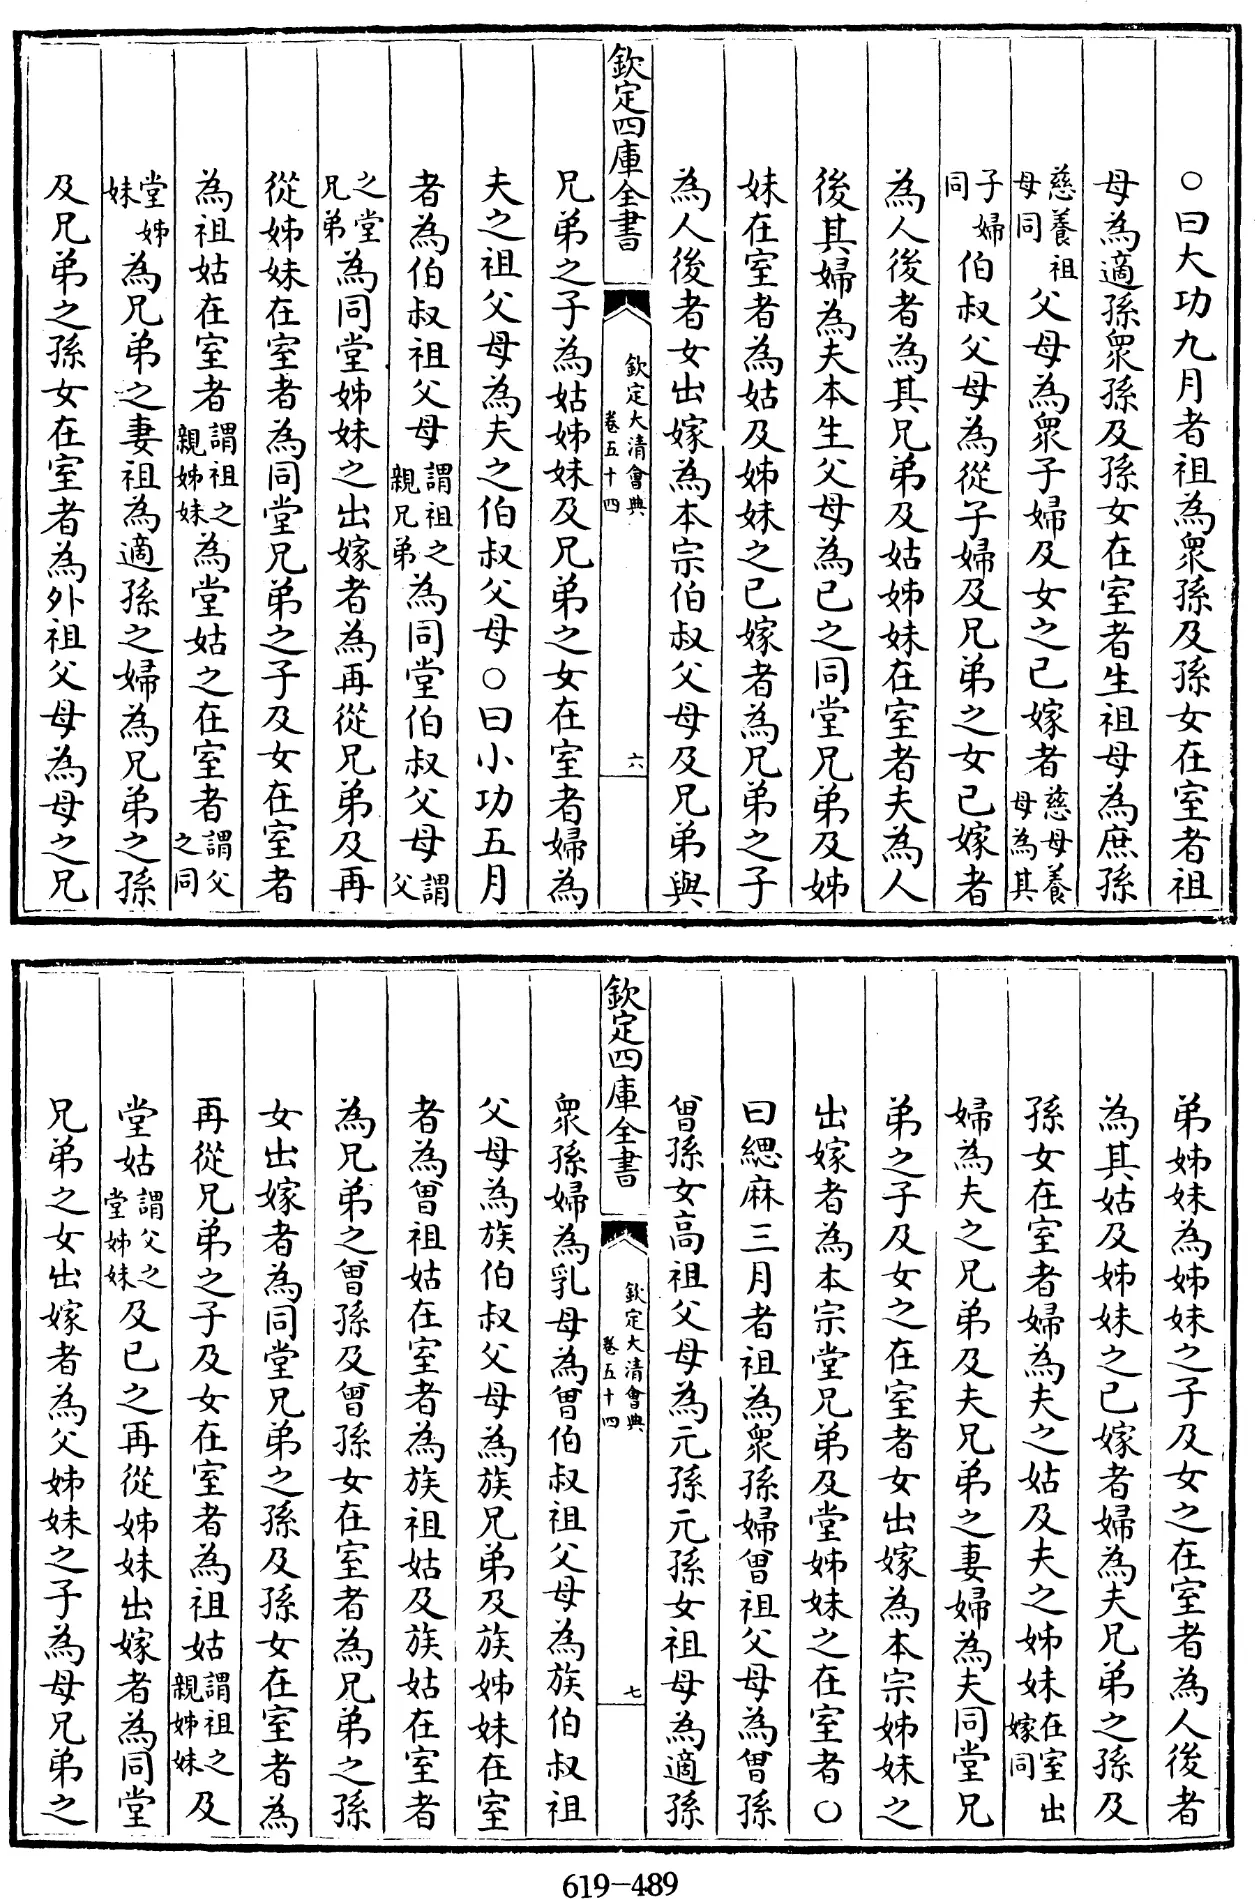 ○曰大功九月者祖為衆孫及孫女在室者祖
母為適孫衆孫及孫女在室者生祖母為庶孫
慈養祖母同父母為衆子婦及女之已嫁者慈母養母為其
子婦同伯叔父母為從子婦及兄弟之女已嫁者
為人後者為其兄弟及姑姊妹在室者夫為人
後其婦為夫本生父母為已之同堂兄弟及姊
妹在室者為姑及姊妹之已嫁者為兄弟之子
為人後者女出嫁為本宗伯叔父母及兄弟與
欽定四庫全書
欽定大清會典
卷五十四
六
兄弟之子為姑姊妹及兄弟之女在室者婦為
夫之祖父母為夫之伯叔父母○曰小功五月
者為伯叔祖父母謂祖之親兄弟為同堂伯叔父母謂父
之堂兄弟為同堂姊妹之出嫁者為再從兄弟及再
從姊妹在室者為同堂兄弟之子及女在室者
為祖姑在室者謂祖之親姊妹為堂姑之在室者謂父之同
堂姊妹為兄弟之妻祖為適孫之婦為兄弟之孫
及兄弟之孫女在室者為外祖父母為母之兄
弟姊妹為姊妹之子及女之在室者為人後者
為其姑及姊妹之已嫁者婦為夫兄弟之孫及
孫女在室者婦為夫之姑及夫之姊妹在室出嫁同
婦為夫之兄弟及夫兄弟之妻婦為夫同堂兄
弟之子及女之在室者女出嫁為本宗姊妹之
出嫁者為本宗堂兄弟及堂姊妹之在室者○
曰緦麻三月者祖為衆孫婦曾祖父母為曾孫
曾孫女高祖父母為元孫元孫女祖母為適孫
欽定四庫全書
欽定大清會典
卷五十四
七
衆孫婦為乳母為曾伯叔祖父母為族伯叔祖
父母為族伯叔父母為族兄弟及族姊妹在室
者為曾祖姑在室者為族祖姑及族姑在室者
為兄弟之曾孫及曾孫女在室者為兄弟之孫
女出嫁者為同堂兄弟之孫及孫女在室者為
再從兄弟之子及女在室者為祖姑謂祖之親姊妹及
堂姑謂父之堂姊妹及已之再從姊妹出嫁者為同堂
兄弟之女出嫁者為父姊妹之子為母兄弟之
619-489